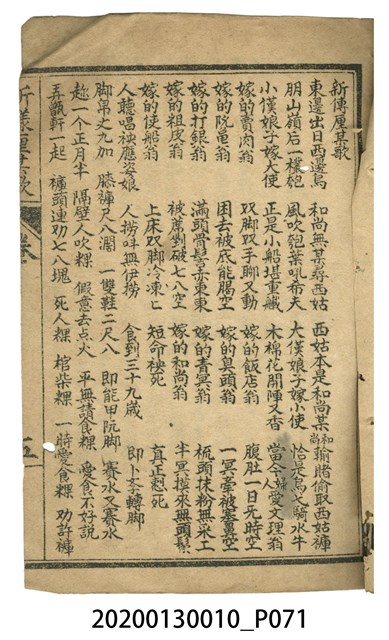 新傳厘某歌
東邊出日西邊烏 和尚無某尋西姑 西姑本是和尚某 和尚輸賭偷取西姑褲
朋山嶺后一樸匏 風吹匏葉吼希夫 大漢娘子嫁小使 恰是烏弋騎水牛
小漢娘子嫁大使 正是小船堪重儎 木棉花開陣又香 當今人婦愛文理翁
嫁的賣肉翁 双脚双手聊又動 嫁的飯店翁 腹肚一日无時空
嫁的阮竜翁 困去被底能賜空 嫁的臭頭翁 一冥舉被塞薑空
嫁的打銀翁 滿頭骨髻赤東東 嫁的青冥翁 梳頭抹粉無采工
嫁的粗皮翁 被蓆剉破七八空 嫁的和尚翁 半冥摸來無頭鬃
嫁的使船翁 上床双脚冷凍亡 短命秧死 真正惣死
人聽唱秧應姿娘 人撈咩無伊撈 食到三十九歲 即卜孝轉脚
脚帛丈九加 膝褲尺八濶 一雙鞋二尺八 即能甲阮脚 賽水又賽水
趂一个正月半 隔壁人吹粿 假意去点火 平無請食粿 愛食不好説
弄甑軒一起 褲頭連刼七八塊 死人粿 棺柴粿 一時愛食粿 刼許褲
卷
五
20200130010_P071